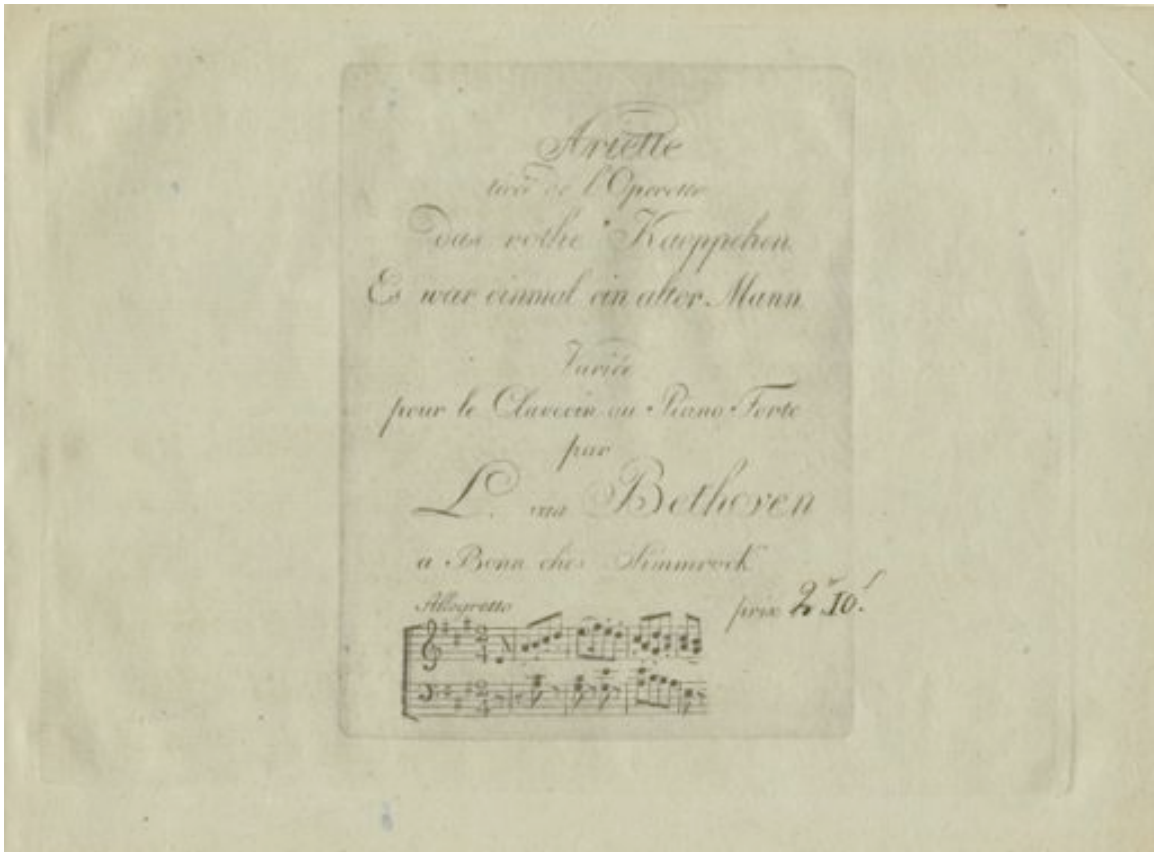 Ariette
tirée de l'Operette
Das rothe Kaeppchen.
Es war einmal ein alter Mann
Variée
pour le Clavecin ou Piano Forte
par
L. van Bethoven
a Bonn chez Simmrock
Allegretto
prix 2 10.